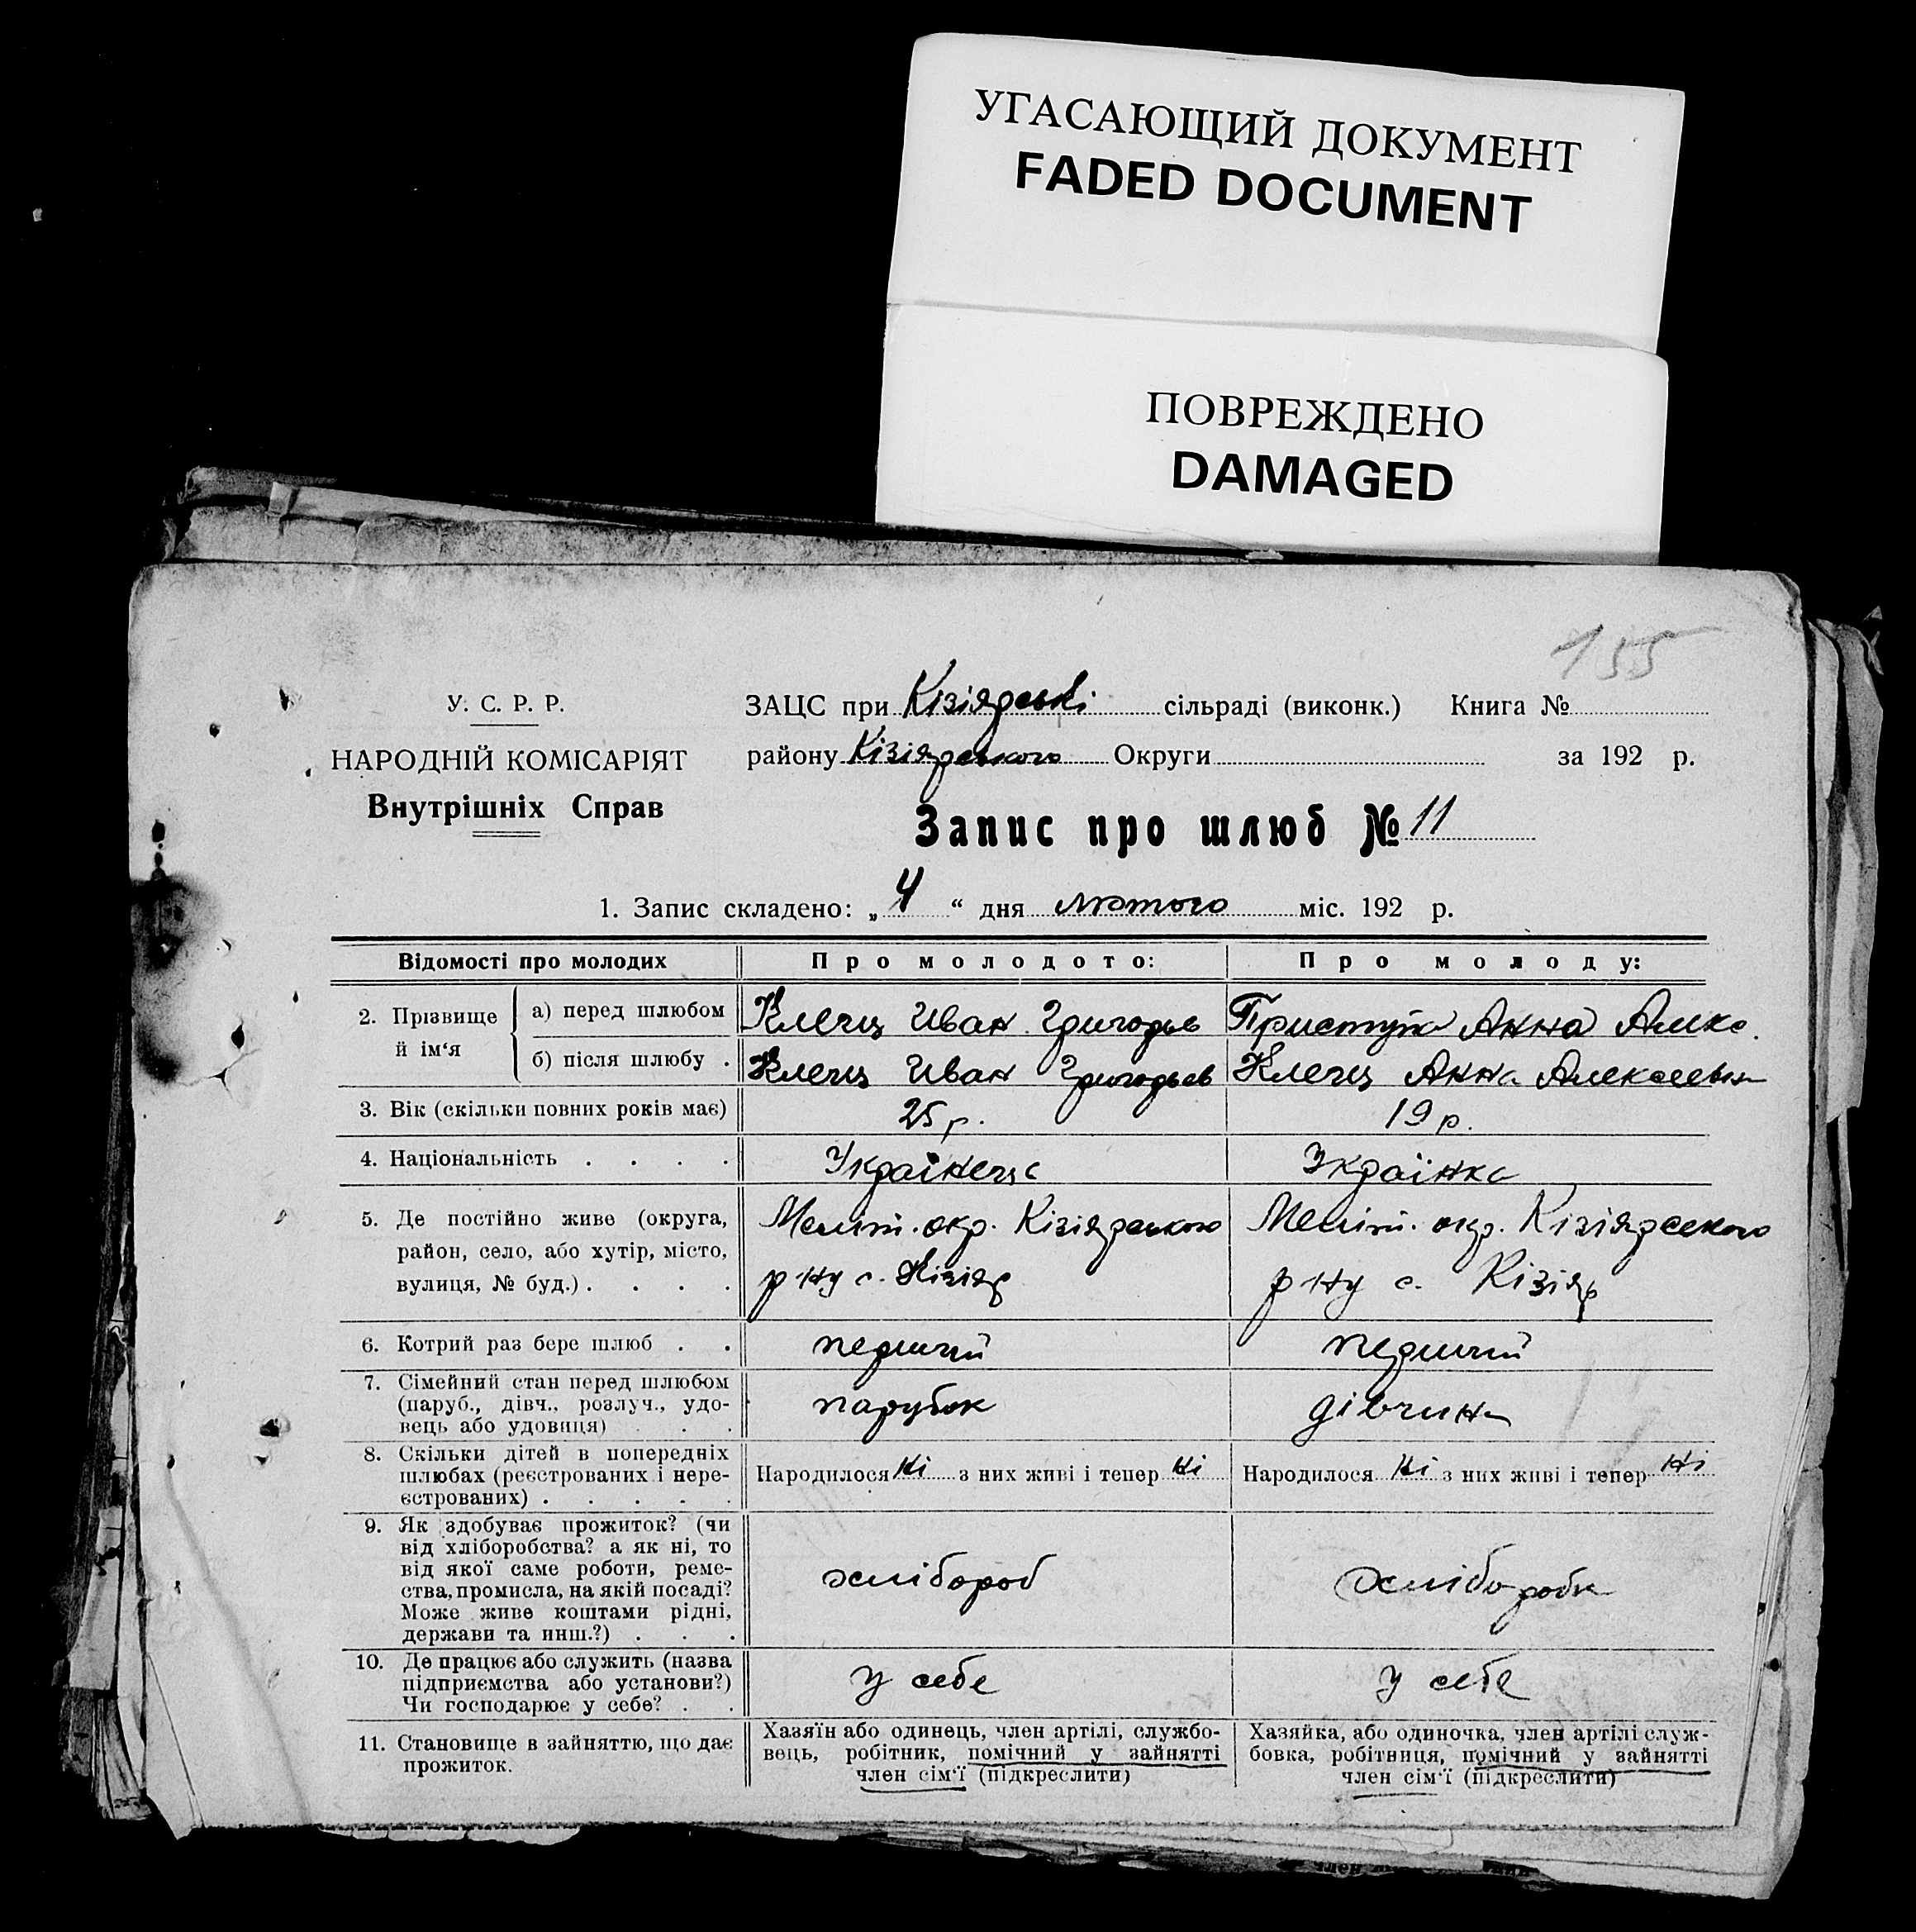 УГАСАЮЩИЙ ДОКУМЕНТ
FADED DOCUMENT
ПОВРЕЖДЕНО
DAMAGED
155
У. С. Р. Р.
НАРОДНІЙ КОМІСАРІЯТ
Внутрішніх Справ
ЗАЦС при Кізіярські сільраді (виконк.) Книга №
району Кізіярського Округи за 192 р.
Запис про шлюб № 11
1. Запис складено: „4“ дня лютого міс. 192 р.
Відомості про молодих
Про молодого:
Про молоду:
2. Прізвище й ім‘я
а) перед шлюбом
Клець Иван Григорьев
Приступа Анна Алекс.
б) після шлюбу .
Клець Иван Григорьев
Клець Анна Алексеевн
3. Вік (скільки повних років має)
25 р.
19 р.
4. Національність . . . .
Українець
Українка
5. Де постійно живе (округа,
район, село, або хутір, місто,
вулиця, № буд.) . . . .
Меліт. окр. Кізіярського
р-ну с. Кізіяр
Меліт. окр. Кізіярського
р-ну с. Кізіяр
6. Котрий раз бере шлюб . .
перший
перший
7. Сімейний стан перед шлюбом
(паруб., дівч., розлуч., удо-
вець або удовиця) . . .
парубок
дівчина
8. Скільки дітей в попередніх
шлюбах (реєстрованих і нере-
єстрованих) . . . . .
Народилося Ні з них живі і тепер Ні
Народилося Ні з них живі і тепер Ні
9. Як здобуває прожиток? (чи
від хліборобства? а як ні, то
від якої саме роботи, реме-
ства, промисла, на якій посаді?
Може живе коштами рідні,
держави та инш.?) . . .
хлібороб
хлібаробка
10. Де працює або служить (назва
підприємства або установи?)
Чи господарює у себе? . .
у себе
у себе
11. Становище в зайняттю, що дає
прожиток.
Хазяїн або одинець, член артілі, службо-
вець, робітник, помічний у зайнятті
член сім‘ї (підкреслити)
Хазяйка, або одиночка, член артілі служ-
бовка, робітниця, помічний у зайнятті
член сім‘ї (підкреслити)